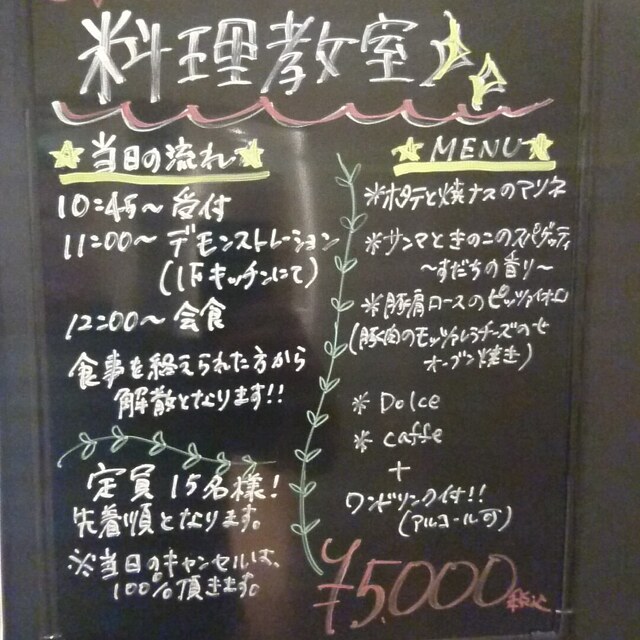 料理教室
当日の流れ
10:45～ 受付
11:00～ デモンストレーション
(1Fキッチンにて)
12:00～ 会食
食事を終えられた方から
解散となります!!
定員 15名様!
先着順となります。
※当日のキャンセルは、
100%頂きます。
MENU
*ホタテと焼ナスのマリネ
*サンマときのこのスパゲッティ
～すだちの香り～
*豚肩ロースのピッツァイオロ
(豚肉のモッツァレラチーズのせ
オーブン焼き)
* Dolce
* caffe
+
ワンドリンク付!!
(アルコール可)
¥5,000税込